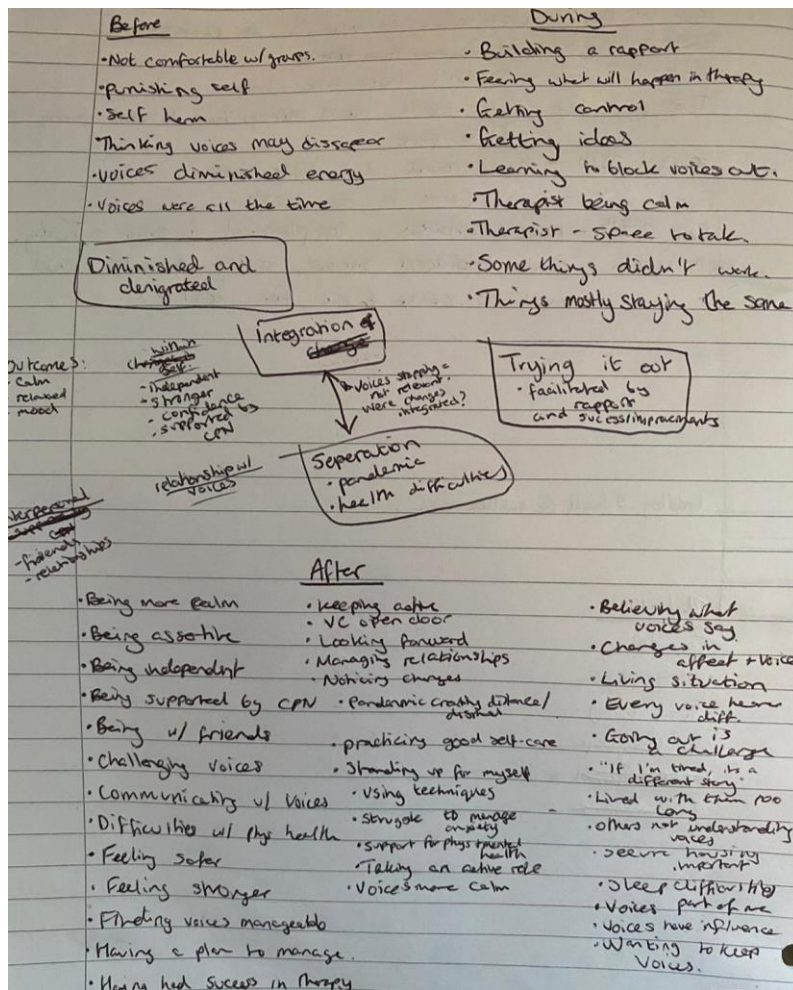 Before
·Not comfortable w/ groups.
·punishing self
·Self harm
·Thinking voices may dissapear
·voices diminished energy
·Voices were all the time
Diminished and
denigrated
During
·Building a rapport
·Fearing what will happen in therapy
·Getting control
·Getting ideas
·Learning to block voices out.
·Therapist being calm
·Therapist - space to talk.
·Some things didn't work.
·Things mostly staying the same
Integration
Voices stopping =
not relevant.
were changes
integrated?
Trying it out
·facilitated by
rapport
and sucess/improvements
Seperation
·pandemic
·health difficulties
Outcomes:
-calm
relaxed
-mood
within
self:
-independent
-stronger
-confidence
-supported by
CPN
relationship w/
voices
-friends
-relationships
After
·Being more calm
·Being assotive
·Being independent
·Being supported by CPN
·Being w/ friends
·Challenging voices
·Communicating w/ voices
·Difficulties w/ phys health
·Feeling safer
·Feeling stronger
·Finding voices manageable
·Having a plan to manage.
·Having had sucess in therapy
·keeping active
·VC open door
·Looking forward
·Managing relationships
·Noticing changes
·Pandemic creating distance/
dismal
·practicing good self-care
·Standing up for myself
·Using techniques
·struggle to manage
anxiety
·support for phys + mental
health
·Taking an active role
·Voices more calm
·Believing what
voices say.
·Changes in
affect + voice
·Living situation
·Every voice hearer
diff.
·Going out is
a challenge
·"If I'm tired, its a
different story"
·Lived with them too
long
·others not understanding
voices
·secure housing
important
·Sleep difficulties
·Voices part of me
·Voices have influence
·Wanting to keep
voices.